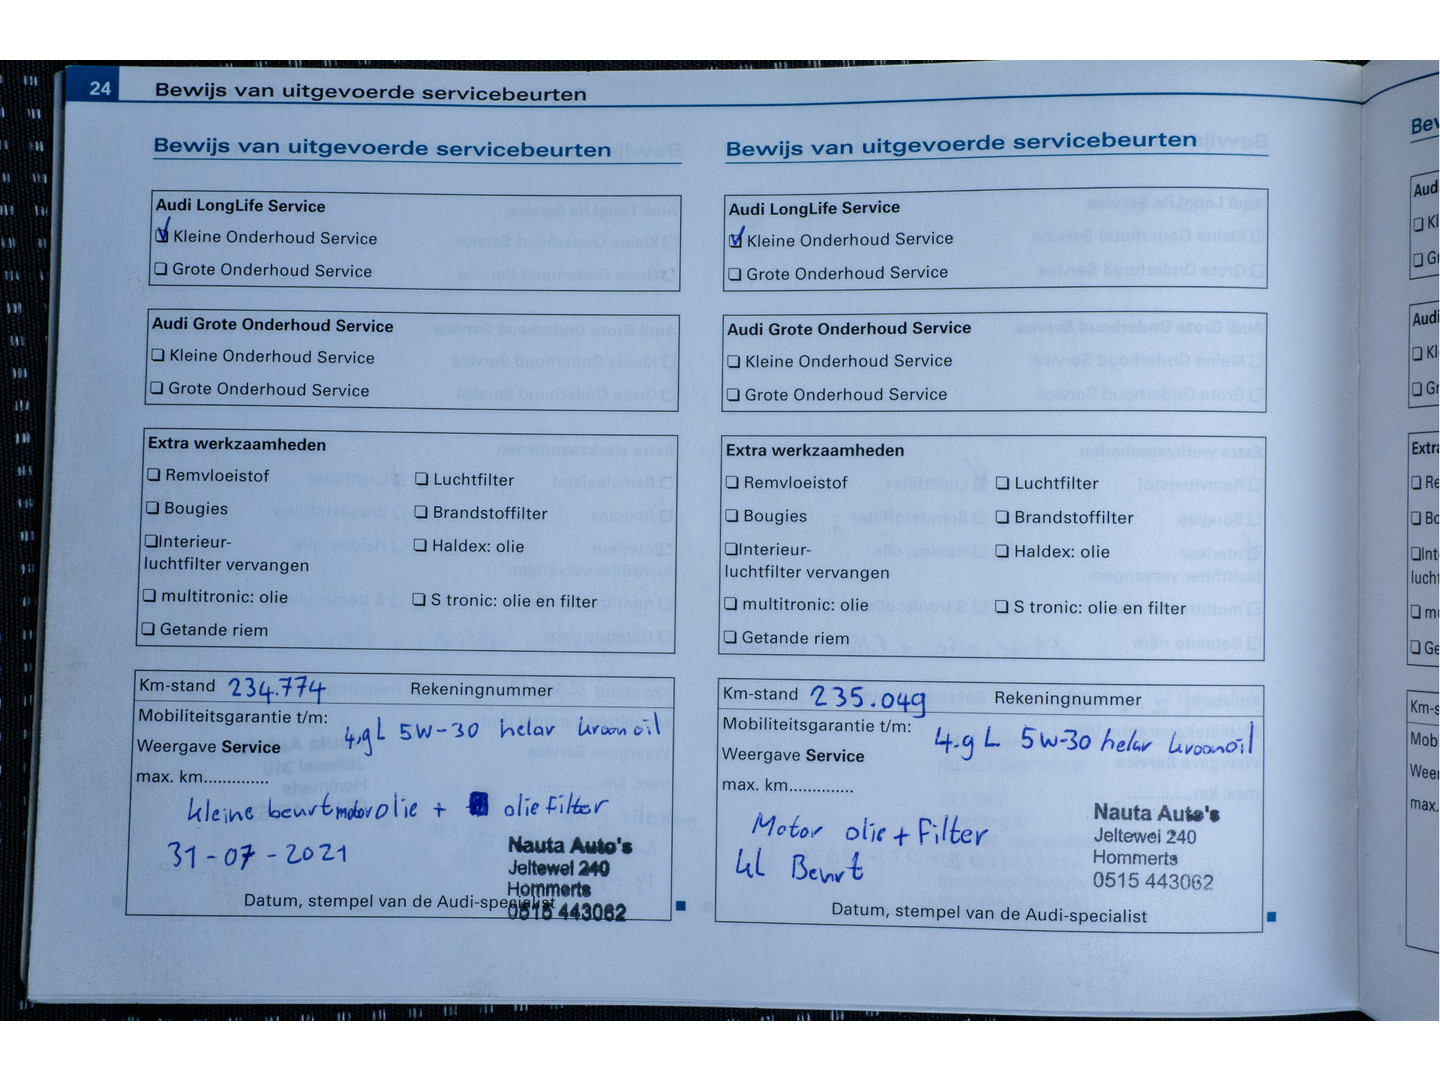 24 Bewijs van uitgevoerde servicebeurten
Bewijs van uitgevoerde servicebeurten
Audi LongLife Service
Kleine Onderhoud Service
Grote Onderhoud Service
Audi Grote Onderhoud Service
Kleine Onderhoud Service
Grote Onderhoud Service
Extra werkzaamheden
Remvloeistof
Luchtfilter
Bougies
Brandstoffilter
Interieur-
luchtfilter vervangen
Haldex: olie
multitronic: olie
S tronic: olie en filter
Getande riem
Km-stand 234.774 Rekeningnummer
Mobiliteitsgarantie t/m:
4,9L 5W-30 helar kroonoil
Weergave Service
max. km..............
kleine beurt motorolie + olie Filter
31-07-2021
Nauta Auto's
Jeltewei 240
Hommerts
0515 443062
Datum, stempel van de Audi-specialist
Bewijs van uitgevoerde servicebeurten
Audi LongLife Service
Kleine Onderhoud Service
Grote Onderhoud Service
Audi Grote Onderhoud Service
Kleine Onderhoud Service
Grote Onderhoud Service
Extra werkzaamheden
Remvloeistof
Luchtfilter
Bougies
Brandstoffilter
Interieur-
luchtfilter vervangen
Haldex: olie
multitronic: olie
S tronic: olie en filter
Getande riem
Km-stand 235.049 Rekeningnummer
Mobiliteitsgarantie t/m:
4.9 L 5W-30 helar kroonoil
Weergave Service
max. km..............
Motor olie + Filter
kl Beurt
Nauta Auto's
Jeltewei 240
Hommerts
0515 443062
Datum, stempel van de Audi-specialist